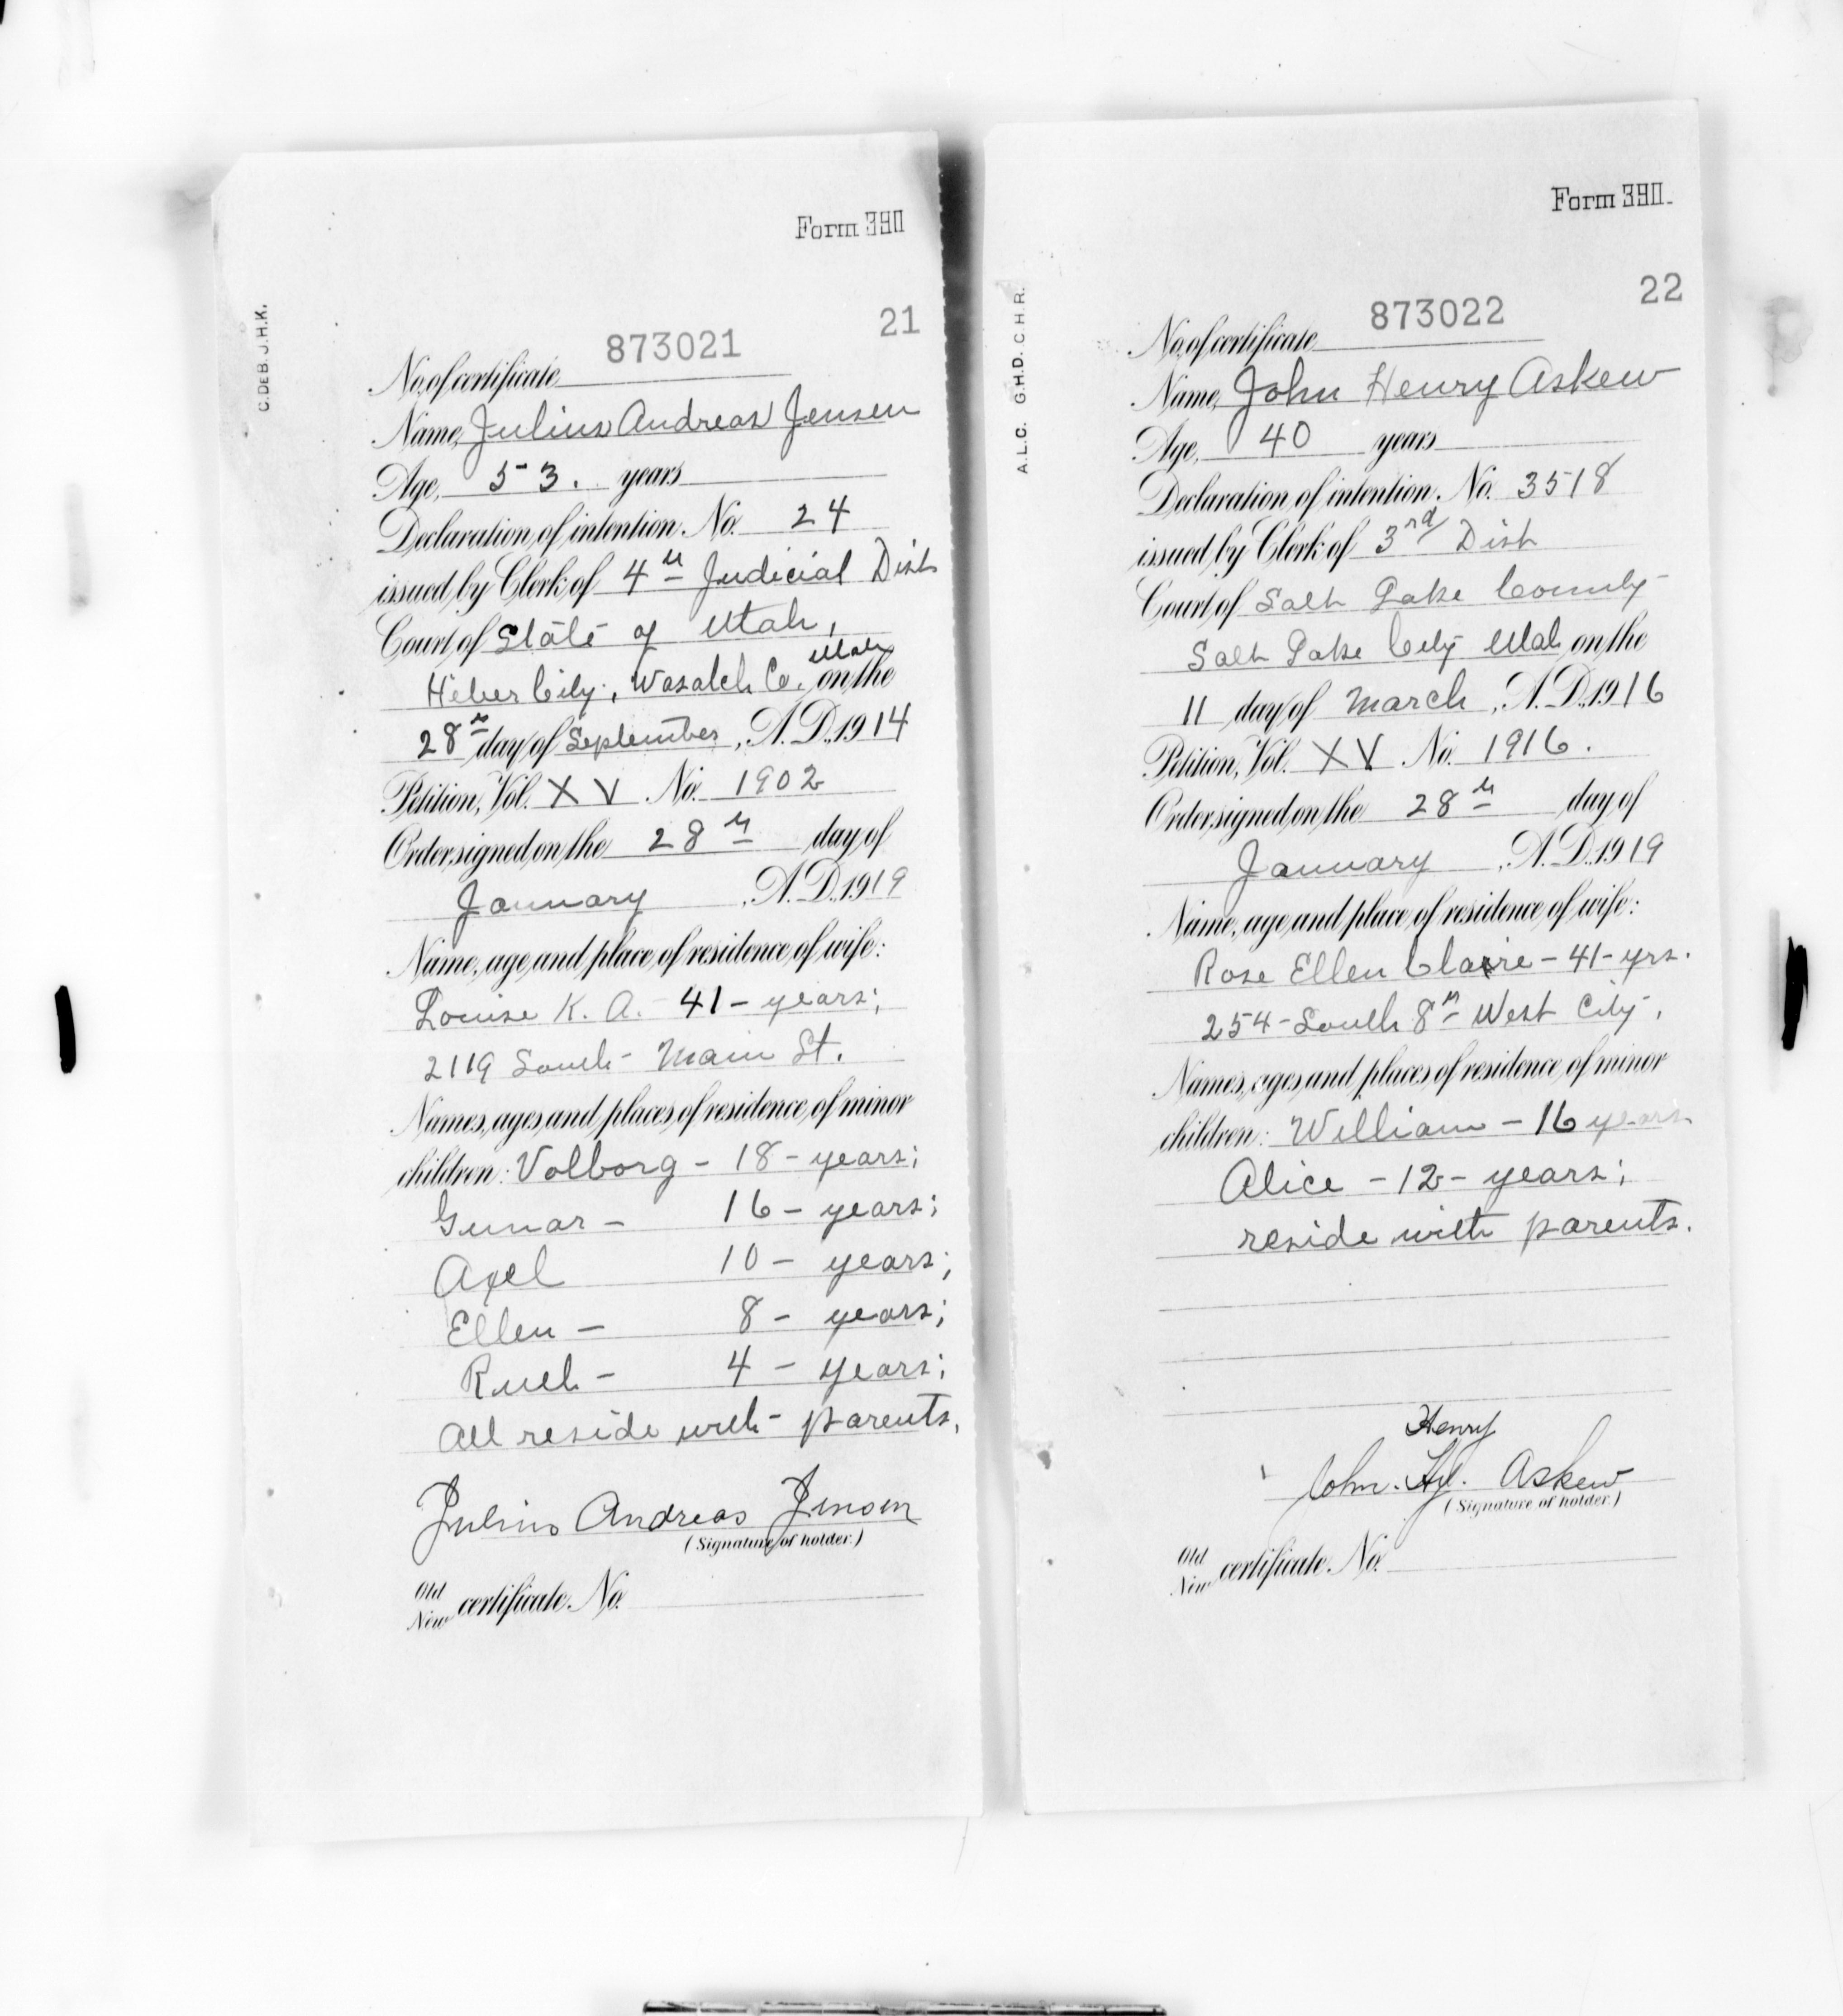 Form 390
C. DE B. J.H.K.
21
No. of certificate 873021
Name, Julius Andreas Jensen
Age, 53. years
Declaration of intention, No. 24
issued by Clerk of 4th Judicial Dist
Court of State of Utah,
Utah
Heber City, Wasatch Co. on the
28th day of September, A.D. 1914
Petition, Vol. XV No. 1902
Order signed on the 28th day of
January, A.D. 1919
Name, age and place of residence of wife:
Louise K. A. 41 - years;
2119 South - Main St.
Names, ages and places of residence of minor
children: Volborg - 18 - years;
Gunar - 16 - years;
Axel 10 - years;
Ellen - 8 - years;
Ruth - 4 - years;
All reside with - parents,
Julius Andreas Jensen
(Signature of holder.)
Old
New certificate No.
Form 390.
A.L.C. G.H.D. C.H.R.
22
No. of certificate 873022
Name, John Henry Askew
Age, 40 years
Declaration of intention, No. 3518
issued by Clerk of 3rd Dist
Court of Salt Lake County
Salt Lake City Utah on the
11 day of March, A.D. 1916
Petition, Vol. XV No. 1916.
Order signed on the 28th day of
January, A.D. 1919
Name, age and place of residence of wife:
Rose Ellen Claire - 41 - yrs.
254 - South 8th West City,
Names, ages and places of residence of minor
children: William - 16 years
Alice - 12 - years;
reside with parents.
Henry
John. Hy. Askew
(Signature of holder.)
Old
New certificate No.